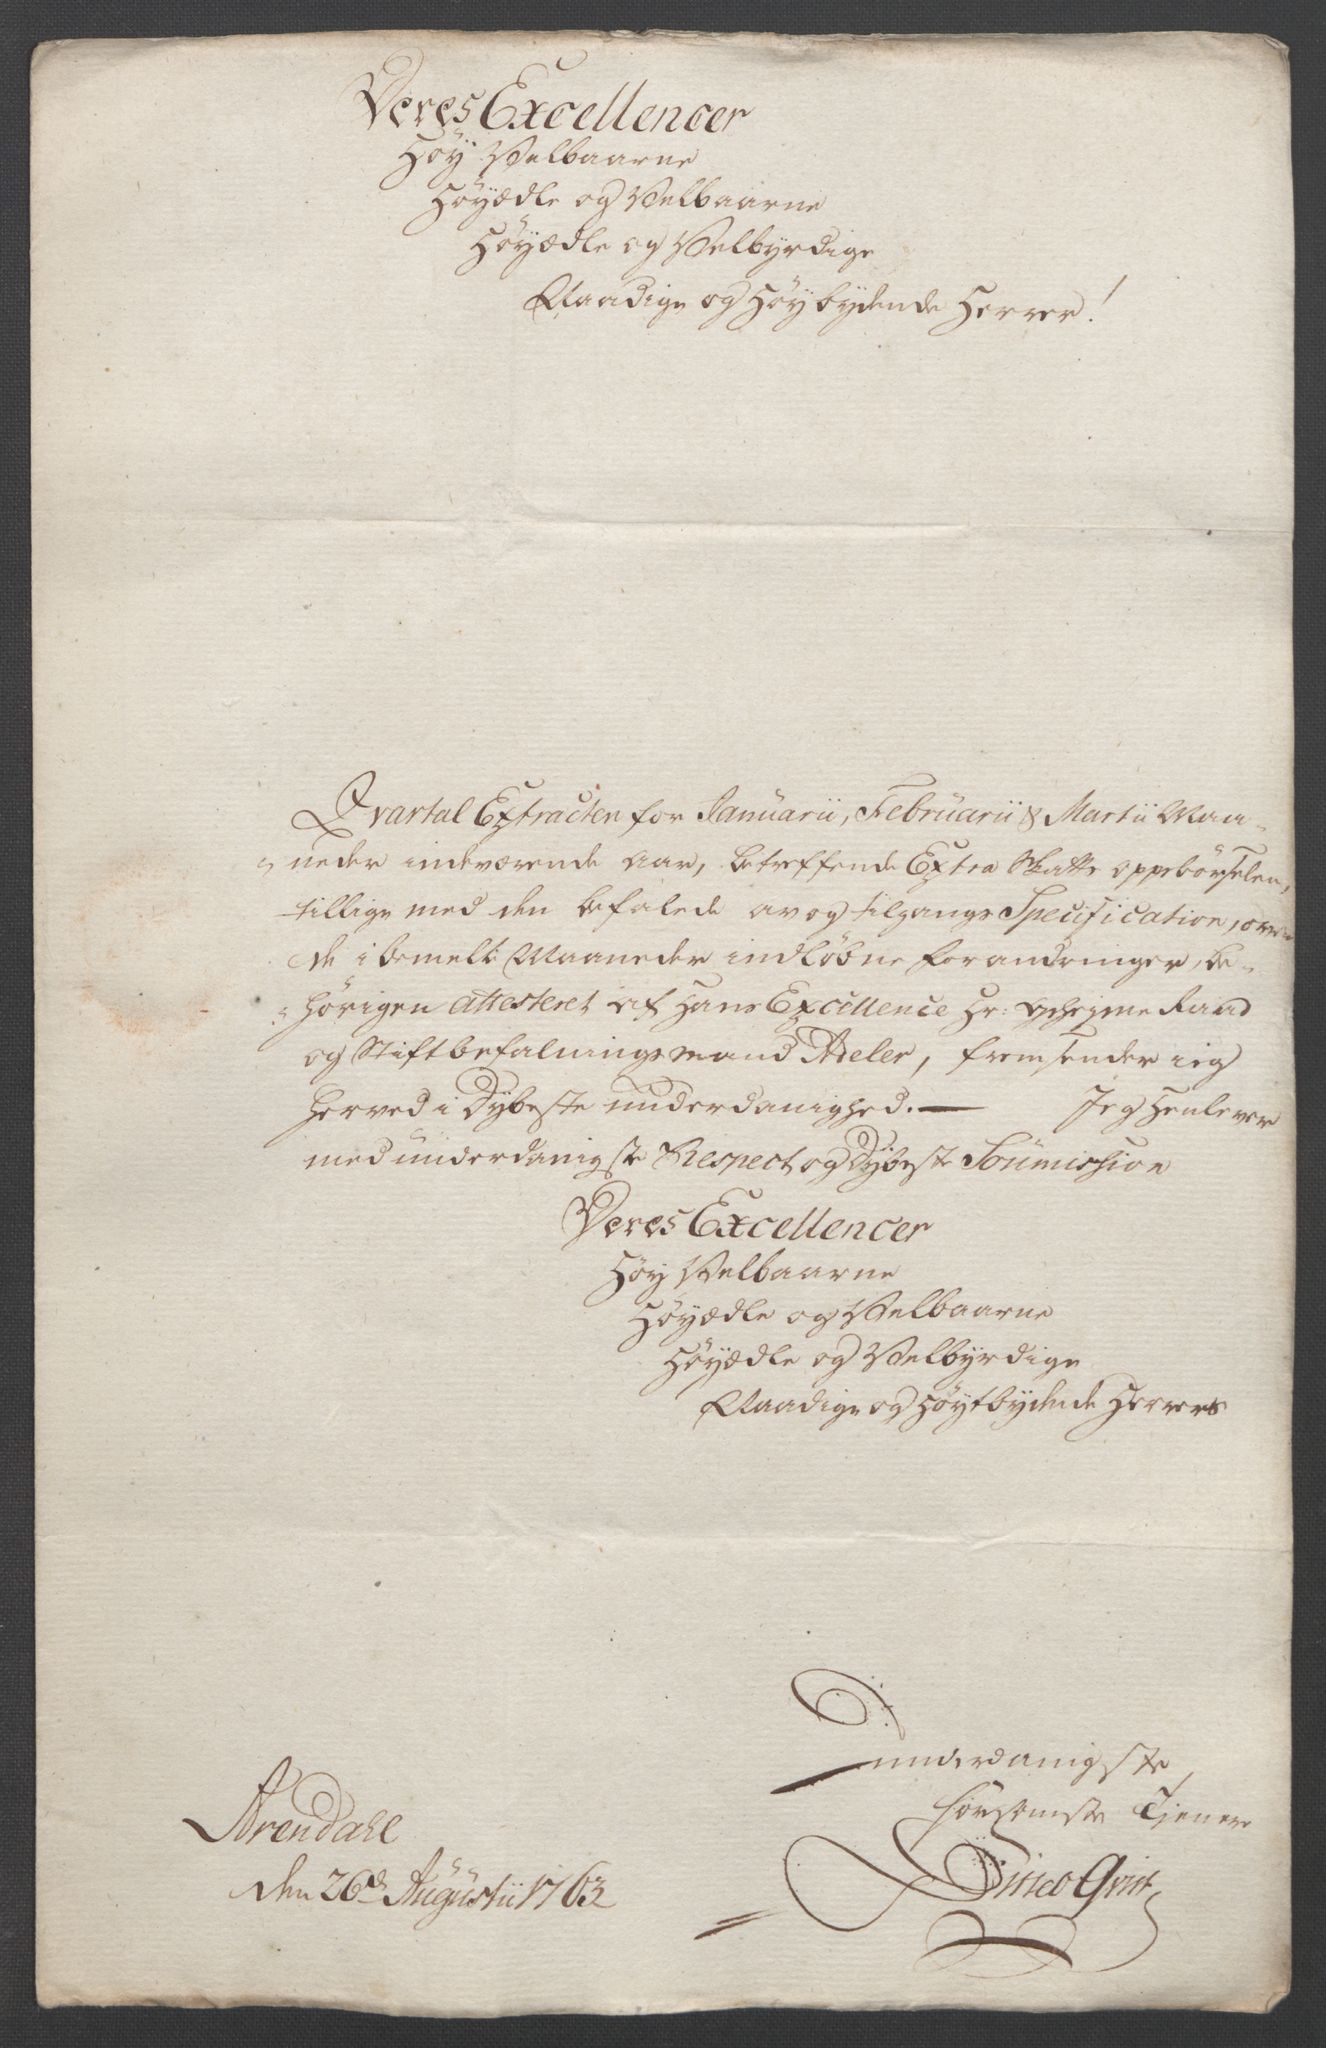 Deres Excellencer
Höy Velbaarne
Höyædle og Velbaarne
Höyædle og Velbyrdige
Naadige og Höybydende Herrer!
Qvartal Extracten for Januarii, Februarii & Martii Maa-
neder indeværende Aar, betreffende Extra Skatts oppebörselen,
tillige med den befalede av og tilgangs Specification, over
de i bemelte Maaneder indløbne forandringer, be-
hörigen attesteret af Hans Excellence Hr: Geheime Raad
og Stiftbefalningsmand Adeler, fremsender ieg
herved i Dybeste underdanighed. — Jeg henlever
med underdanigste Respect og Dybeste Soumission
Deres Excellencer
Höy Velbaarne
Höyædle og Velbaarne
Höyædle og Velbyrdige
Naadige og Höytbydende Herrers
underdanigste
hörsomste Tjener
Arendahl
den 26de Augustii 1763